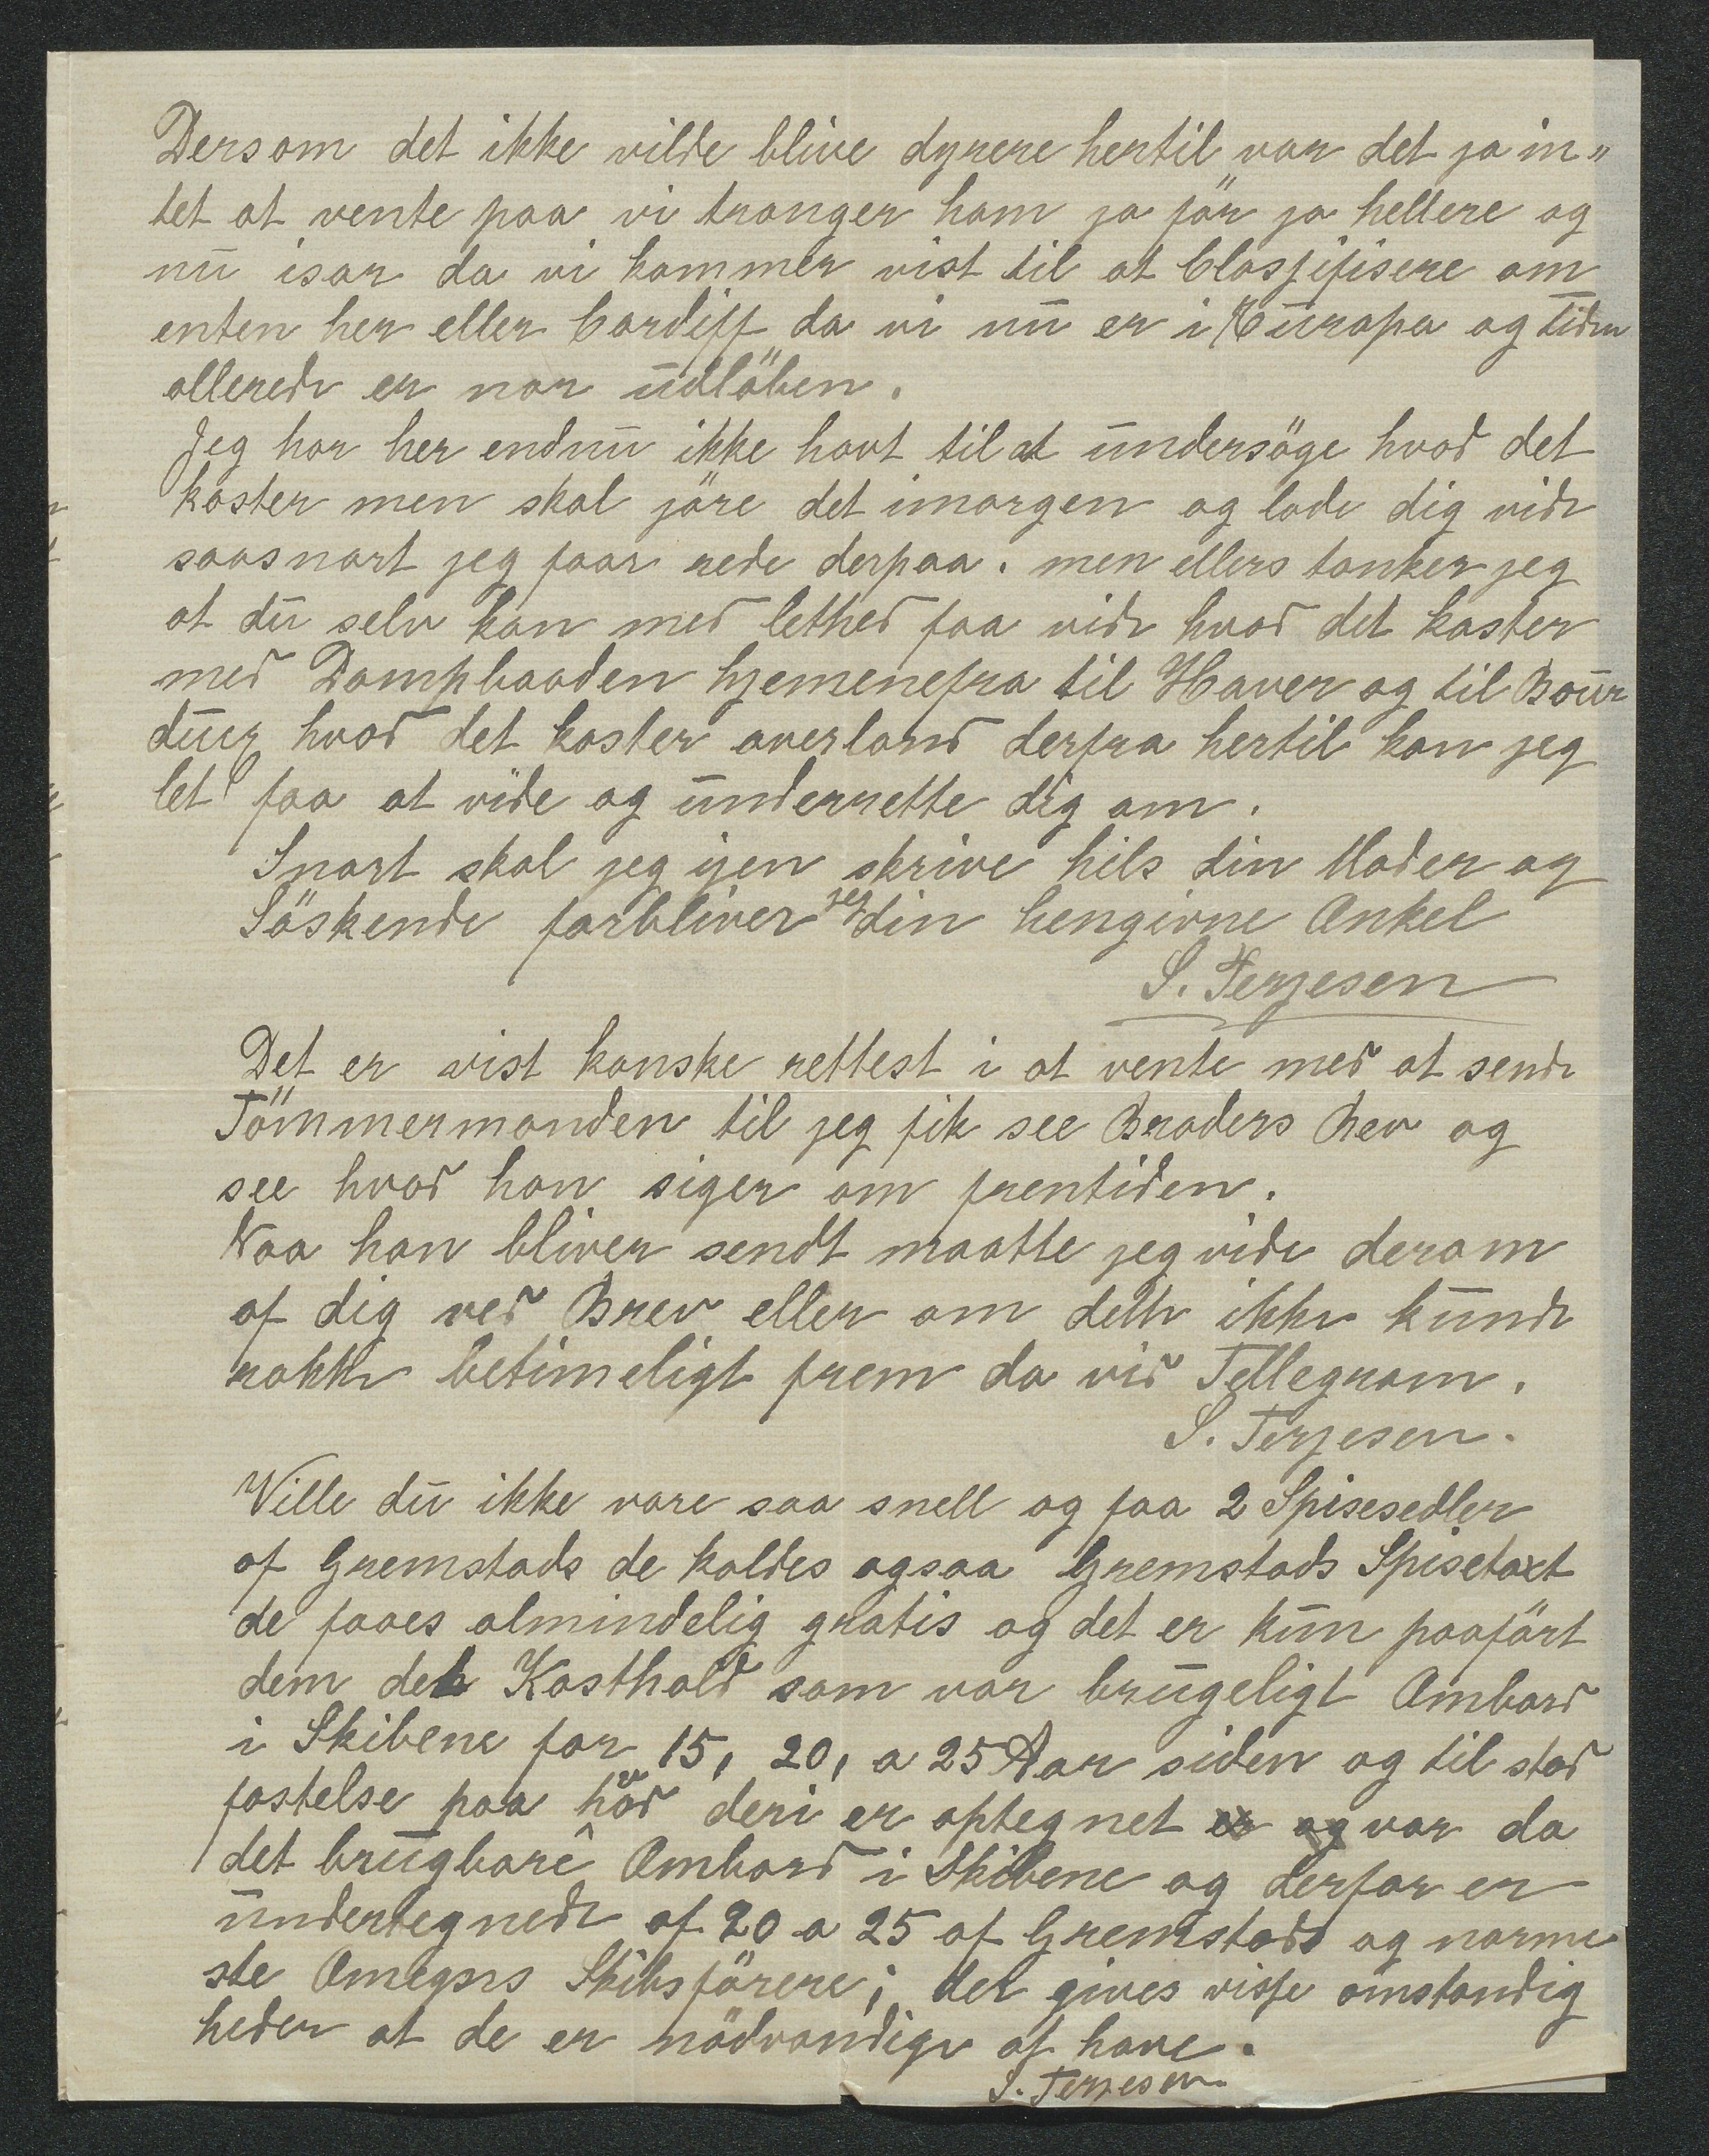 Dersom det ikke vilde blive dyrere hertil var det ja in„
tet at vente paa vi tranger ham joför jo hellere og
nu isar da vi kommer vist til at Classifisere om
enten her eller Cardiff da vi nu er i Europa og tiden
allerede er nar udlöben.
Jeg har her endnu ikke havt til at undersöge hvad det
koster men skal jöre det imorgen og lade dig vide
saasnart jeg faar rede derpaa. men ellers tanker jeg
at du selv kan med lethed faa vide hvad det koster
med Dampbaaden hjemenefra til Haver og til Bour
duer hvad det koster overland derfra hertil kan jeg
let faa at vide og underrette dig om.
Snart skal jeg igen skrive hils din Moder og
Söskende forbliver jeg din hengivne Onkel
S. Terjesen
Det er vist kanske rettest i at vente med at sende
Tömmermanden til jeg fik see Broders Brev og
see hvad han siger om fremtiden.
Naa han bliver sendt maatte jeg vide derom
af dig ved Brev eller om dette ikke kunde
rakke betimeligt frem da vid Tellegram.
S. Terjesen.
Ville du ikke vare saa snell og faa 2 Spisesedler
af Gremstads de kaldes ogsaa Gremstads Spisetaxt
de faaes almindelig gratis og det er kun paafört
dem det Kosthold som var brugeligt Ombord
i Skibene for 15, 20, a 25 Aar siden og til stad
fastelse paa hvad deri er optegnet er og var da
det brugbare Ombord i Skibene og derfor er
undertegnede af 20 a 25 af Gremstads og narme
ste Omegns Skibsförere; det gives visse omstandig
heder at de er nödvandige at have.
S. Terjesen.